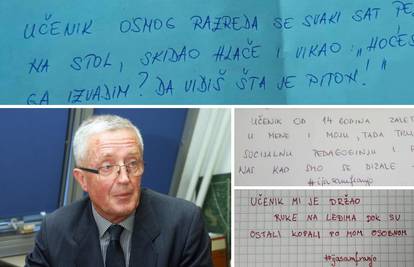 UČENIK OSMOG RAZREDA SE SVAKI SAT PE
NA STOL, SKIDAO HLAČE I VIKAO: „HOĆEŠ
GA IZVADIM? DA VIDIŠ ŠTA JE PITON!"
UČENIK OD 14 GODINA ZALET
U MENE I MOJU, TADA TRU
SOCIJALNU PEDAGOGINJU I
NAS KAD SMO SE DIZALE
#ijasamfranjo
UČENIK MI JE DRŽAO
RUKE NA LEĐIMA DOK SU
OSTALI KOPALI PO MOM OSOBNOM
#ijasamfranjo